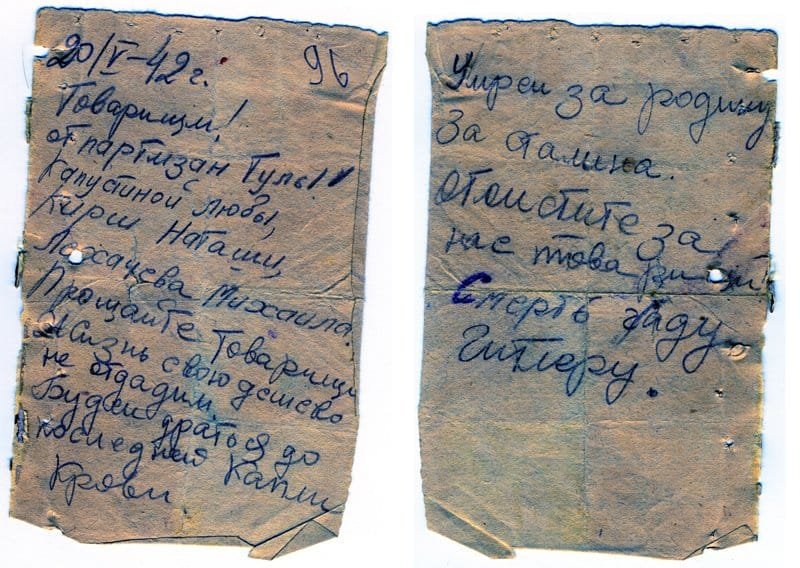 20/V-42 г.
96
Товарищи!
от партизан Тулы!
Капустиной Любы,
Кирш Наташи,
Лохачева Михаила.
Прощайте Товарищи
Жизнь свою дешево
не отдадим.
Будем драться до
последней Капли
Крови
Умрем за родину
За сталина.
Отомстите за
нас товарищи!
Смерть гаду
Гитлеру.